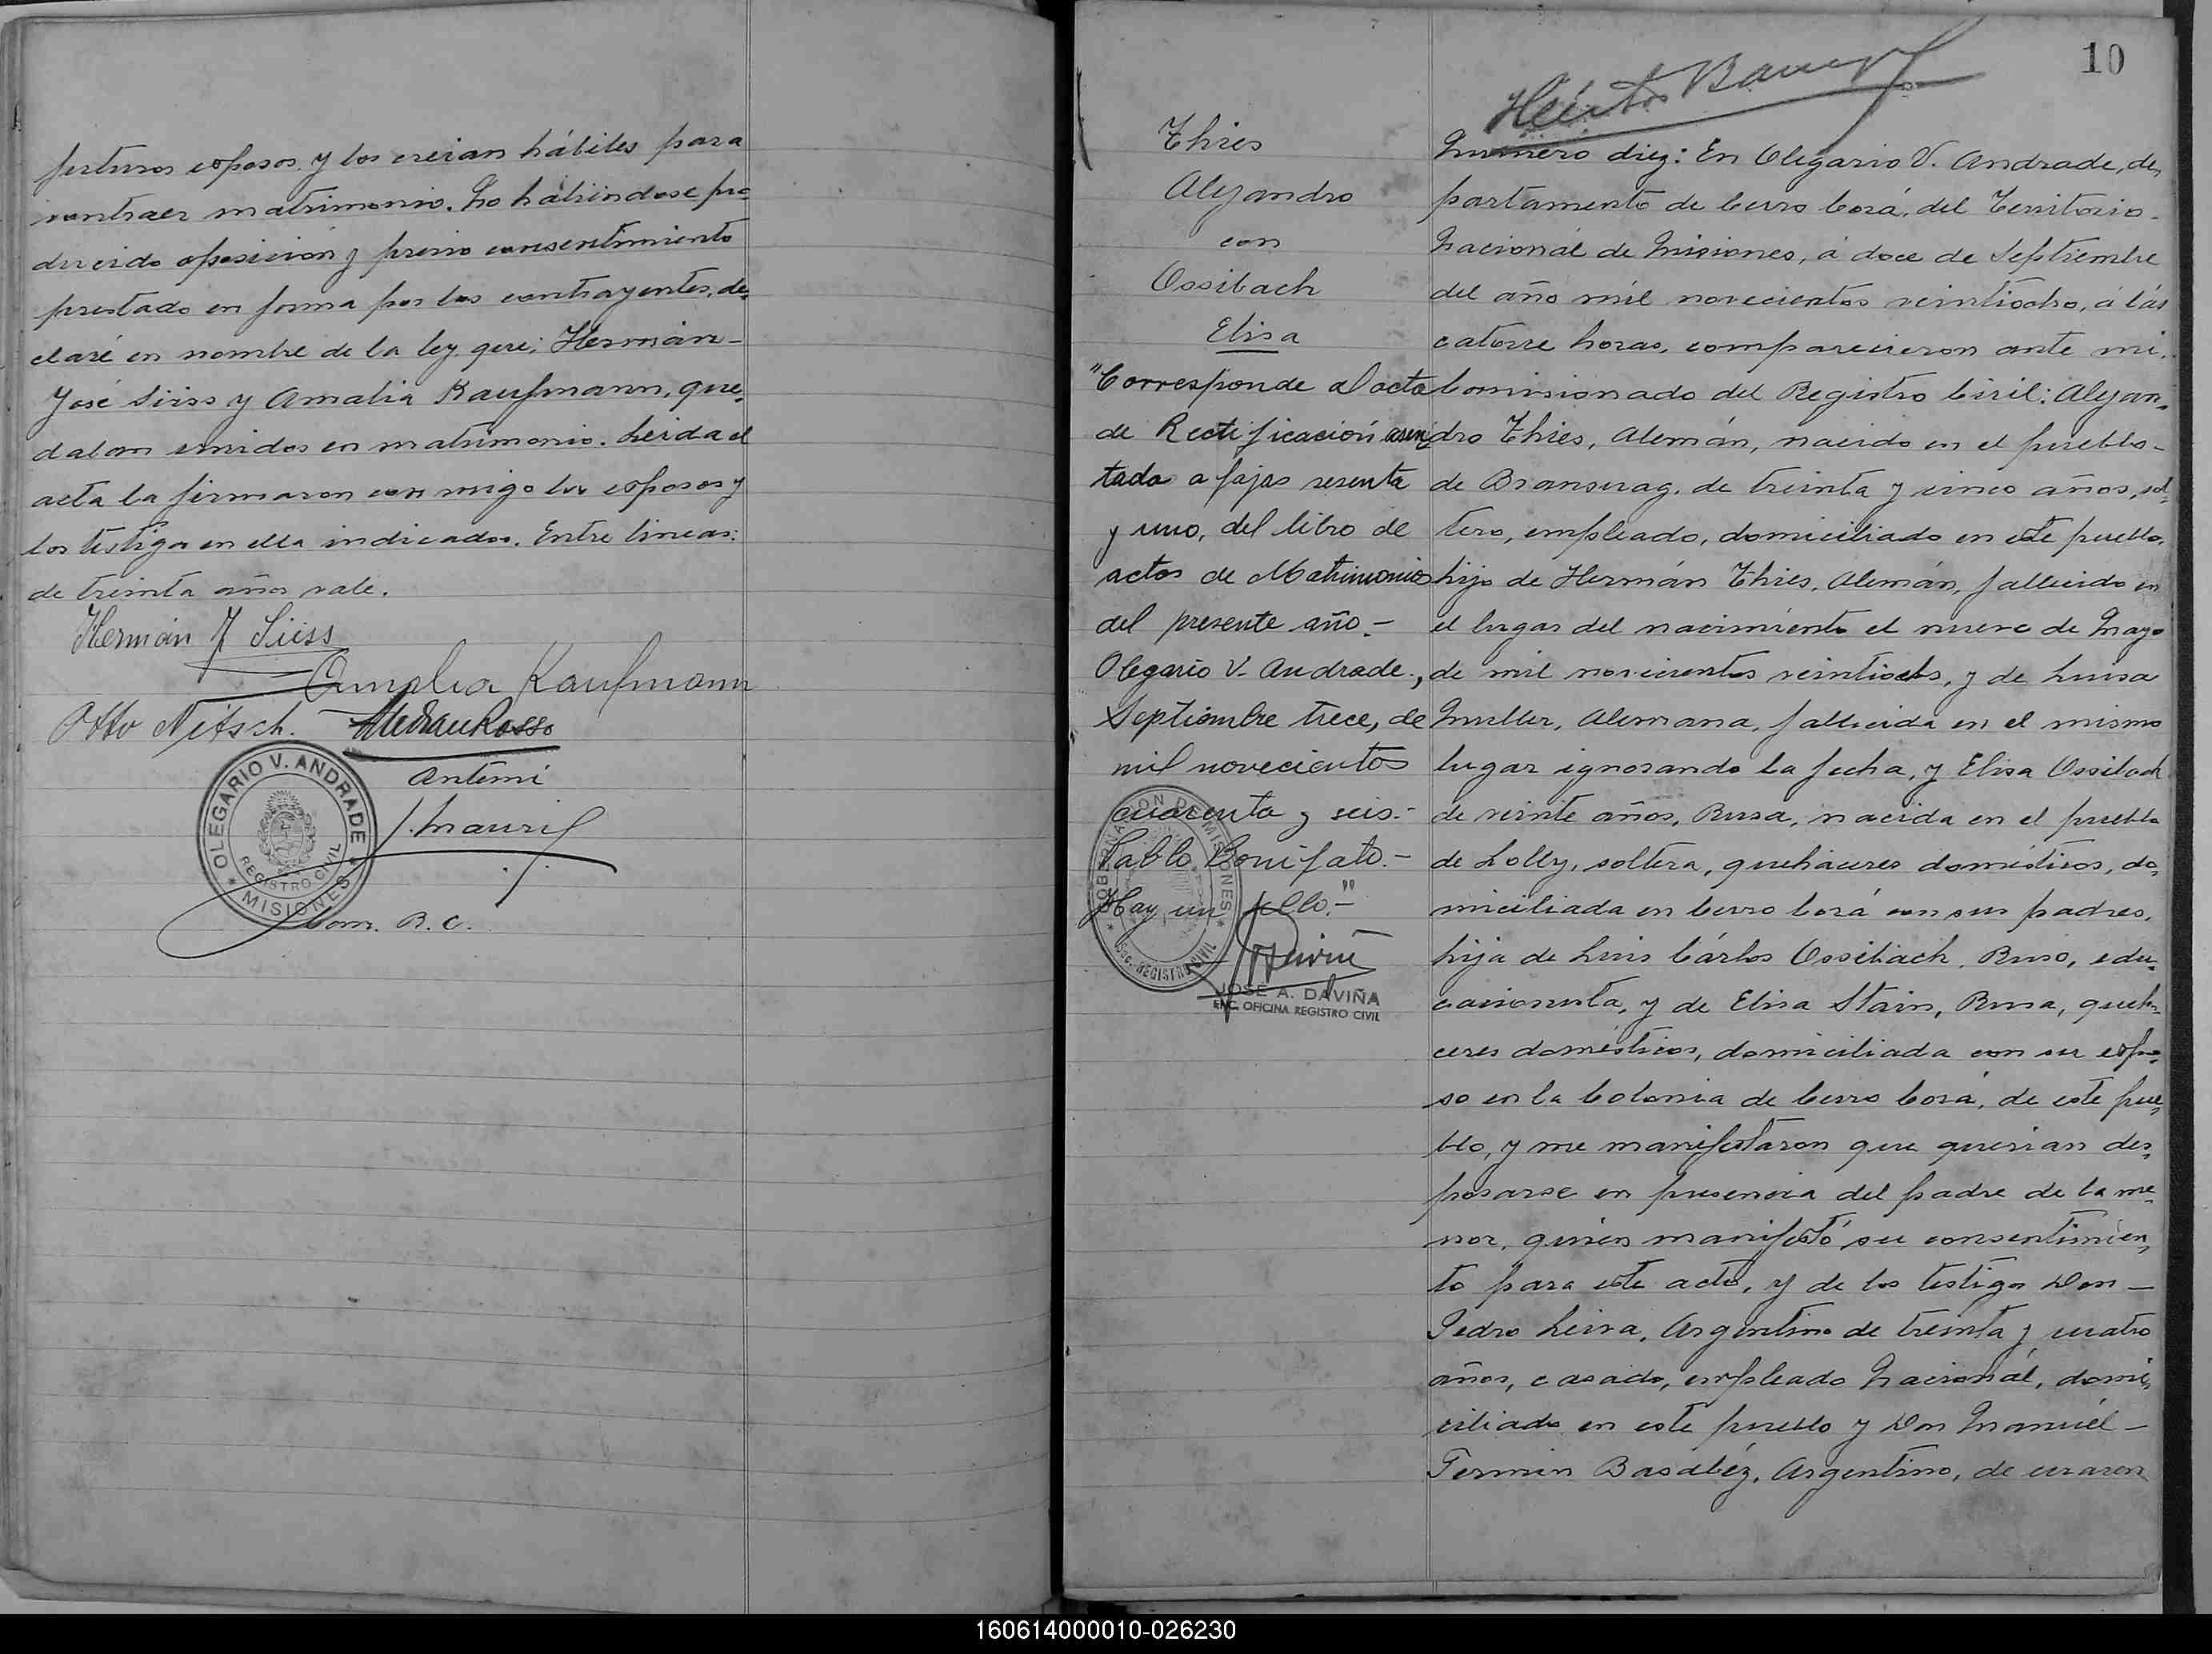 futuros esposos y los creian hábiles para
contraer matrimonio. No habiéndose pro-
ducido oposición y previo consentimiento
prestado en forma por los contrayentes, de-
claré en nombre de la ley que; Hermán-
José Süiss y Amalia Kaufmann, que-
daban unidos en matrimonio. Leida el
acta la firmaron con migo los esposos y
los testigos en ella indicados. Entre lineas:
de treinta años vale.
Hermán J Süiss
Amalia Kaufmann
Otto Nitsch.
Antemi
OLEGARIO V. ANDRADE
REGISTRO CIVIL
* MISIONES *
Com. R. C.
10
Thies
Alejandro
con
Ossibach
Elisa
"Corresponde al acta
de Rectificación asen-
tada a fojas sesenta
y uno, del libro de
actas de Matrimonios
del presente año.-
Olegario V. Andrade,
Septiembre trece, de
mil novecientos
cuarenta y seis.-
Pablo Bonifato.-
Hay un sello.-"
GOBERNACION DE MISIONES
REGISTRO CIVIL
JOSE A. DAVIÑA
ENC. OFICINA REGISTRO CIVIL
Numero diez: En Olegario V. Andrade, de-
partamento de Cerro Corá, del Territorio-
Nacionál de Misiones, á doce de Septiembre
del año mil novecientos veintiocho, á las
catorce horas, comparecieron ante mi,
Comisionado del Registro Civil: Alejan-
dro Thies, Alemán, nacido en el pueblo-
de Bransurag, de treinta y cinco años, sol-
tero, empleado, domiciliado en este pueblo,
hijo de Hermán Thies, Alemán, fallecido en
el lugar del nacimiento el nueve de Mayo
de mil novecientos veintiocho, y de Luisa
Muller, Alemana, fallecida en el mismo
lugar ignorando la fecha, y Elisa Ossibach
de veinte años, Rusa, nacida en el pueblo
de Lolly, soltera, quehaceres domésticos, do-
miciliada en Cerro Corá con sus padres,
hija de Luis Cárlos Ossibach, Ruso, edu-
cacionista, y de Elisa Stain, Rusa, queha-
ceres domésticos, domiciliada con su espo-
so en la Colonia de Cerro Corá, de este pue-
blo, y me manifestaron que querian des-
posarse en presencia del padre de la me-
nor, quien manifestó su consentimien-
to para este acto, y de los testigos Don-
Pedro Leiva, Argentino de treinta y cuatro
años, casado, empleado Nacionál, domi-
ciliado en este pueblo y Don Manuél-
Fermin Basabéz, Argentino, de cuaren